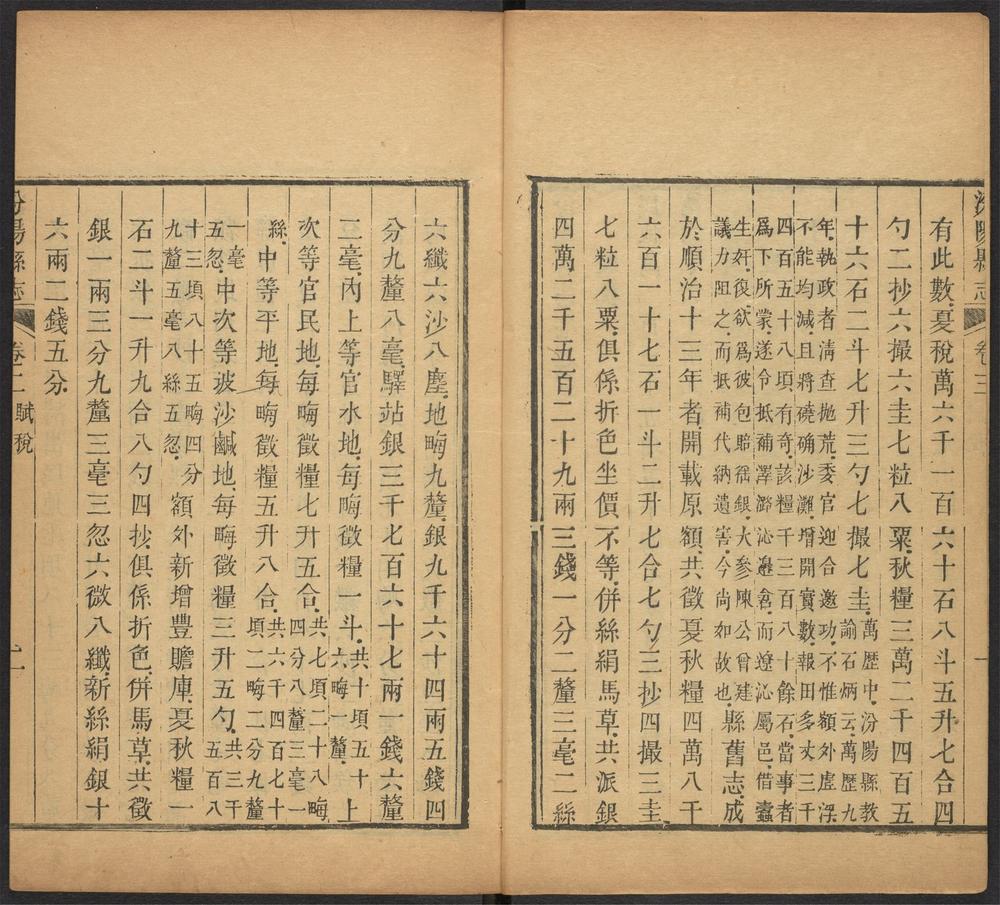 汾陽縣志 卷二
有此數夏稅萬六千一百六十石八斗五升七合四
勺二抄六撮六圭七粒八粟秋糧三萬二千四百五
十六石二斗七升三勺七撮七圭
萬歷中汾陽縣教
諭石炳云萬歷九
年執政者清查拋荒委官迎合邀功不惟額外虛深
不能均減且將磽确沙灘增開實數報田多丈三千
四百五十八頃有奇該糧千三百八十餘石當事者
爲下所蒙遂令抵補澤潞沁邊倉而遼沁屬邑借蠹
生奸復欲爲彼包賠徭銀大參陳公曾建
議力阻之而抵補代納遺害今尚如故也
縣舊志成
於順治十三年者開載原額共徵夏秋糧四萬八千
六百一十七石一斗二升七合七勺三抄四撮三圭
七粒八粟俱係折色坐價不等併絲絹馬草共派銀
四萬二千五百二十九兩三錢一分二釐三毫二絲
六纖六沙八塵地畮九釐銀九千六十四兩五錢四
分九釐八毫驛站銀三千七百六十七兩一錢六釐
三毫內上等官水地每畮徵糧一斗
共十頃五十
六畮一釐
上
次等官民地每畮徵糧七升五合
共七頃二十八畮
四分八釐三毫一
絲
中等平地每畮徵糧五升八合
共六千四百七十
頃二畮二分九釐
一毫
五忽
中次等玻沙鹹地每畮徵糧三升五勺
共三千
五百八
十三頃八十五畮四分
九釐五毫八絲五忽
額外新增豐贍庫夏秋糧一
石二斗一升九合八勺四抄俱係折色併馬草共徵
銀一兩三分九釐三毫三忽六微八纖新絲絹銀十
六兩二錢五分
汾陽縣志 卷二 賦稅 二